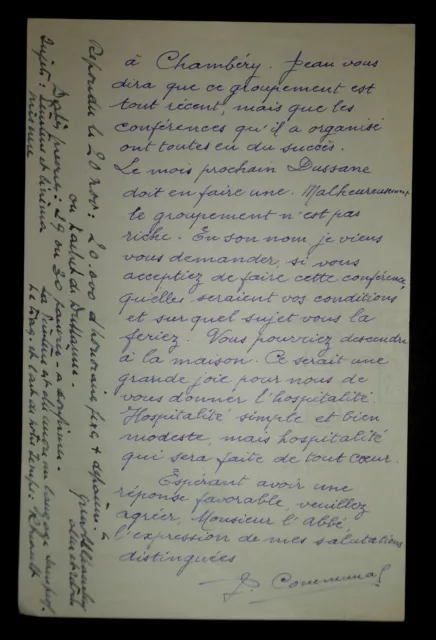 à Chambéry. Jean vous
dira que ce groupement est
tout récent, mais que les
conférences qu'il a organisé
ont toutes eu du succès.
Le mois prochain Dussane
doit en faire une. Malheureusement
le groupement n'est pas
riche. En son nom je viens
vous demander, si vous
acceptiez de faire cette conférence,
quelles seraient vos conditions
et sur quel sujet vous la
feriez. Vous pourriez descendre
à la maison. Ce serait une
grande joie pour nous de
vous donner l'hospitalité.
Hospitalité simple et bien
modeste, mais hospitalité
qui sera faite de tout cœur.
Espérant avoir une
réponse favorable, veuillez
agréer, Monsieur l'Abbé,
l'expression de mes salutations
distinguées
J. Communal
Répondu le 20 nov : 20.000 d'honoraires fixes +
ou cachet de Dussane.
Date : 29 ou 30 janvier
Sujets :